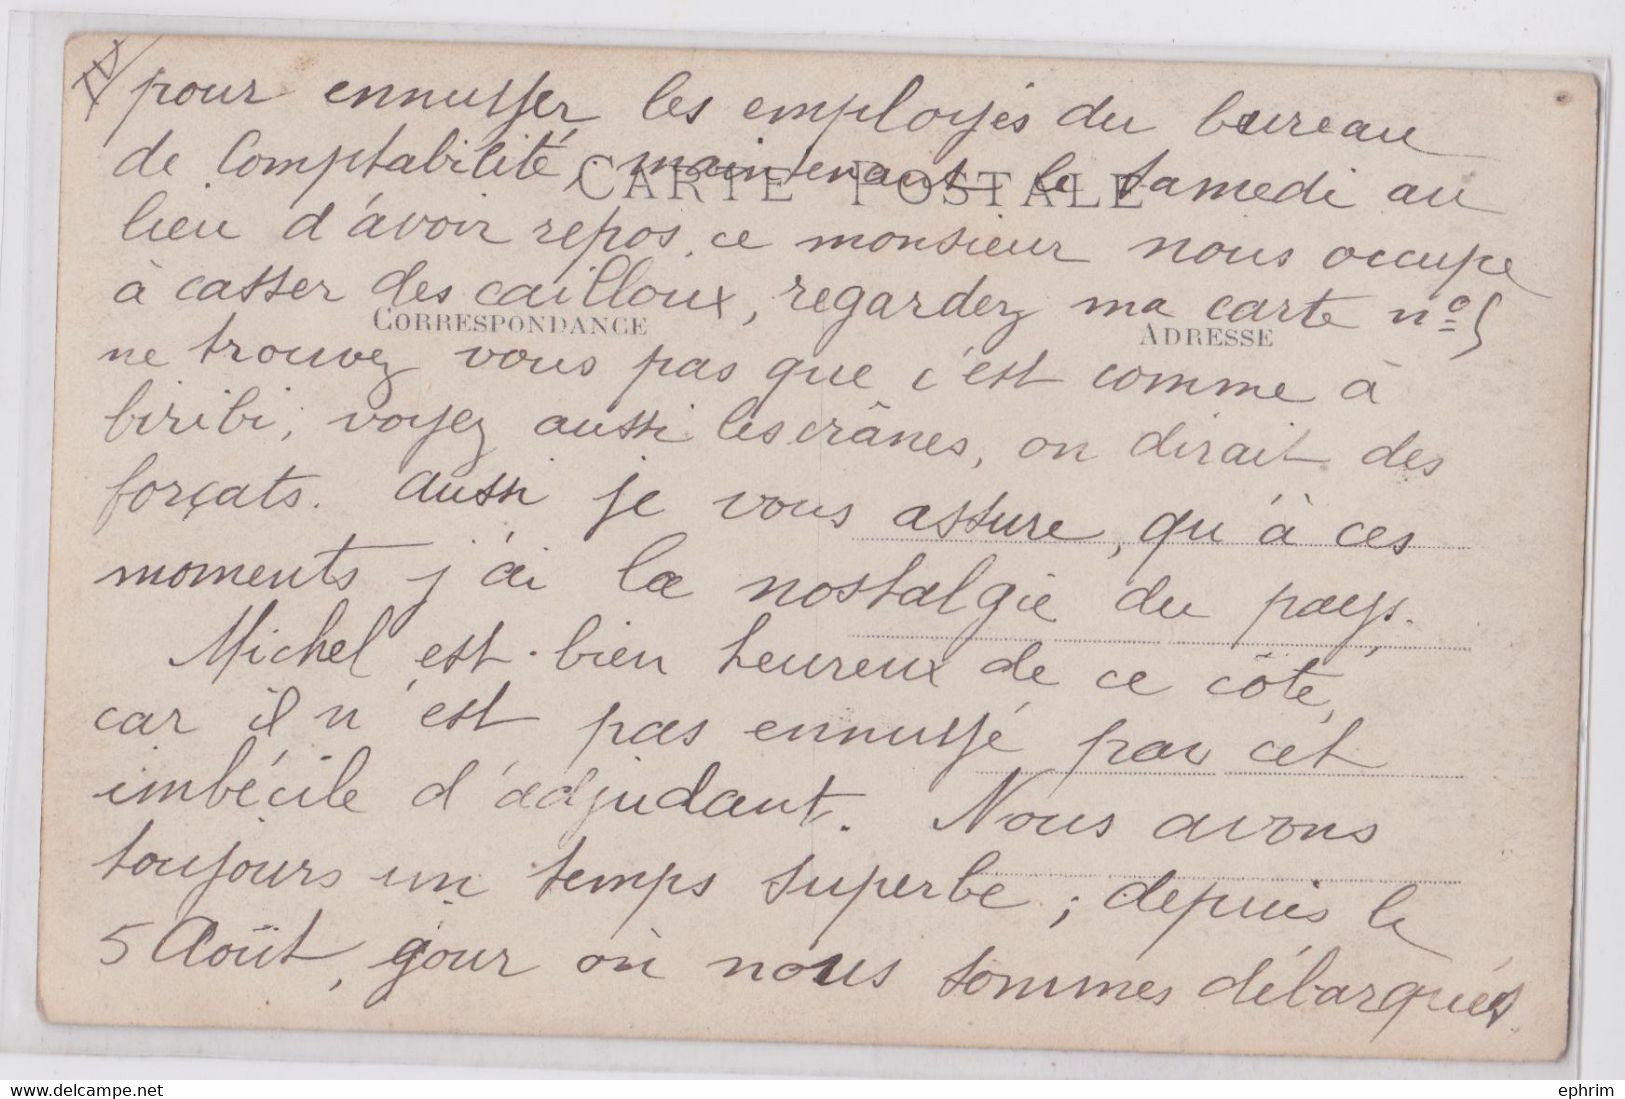 pour ennuyer les employés du bureau
de Comptabilité, maintenant le samedi au
CARTE POSTALE
lieu d'avoir repos, ce monsieur nous occupe
à casser des cailloux, regardez ma carte nº 5
CORRESPONDANCE
ADRESSE
ne trouvez vous pas que c'est comme à
biribi, voyez aussi les crânes, on dirait des
forçats. Aussi je vous assure, qu'à ces
moments j'ai la nostalgie du pays.
Michel est bien heureux de ce côté,
car il n'est pas ennuyé par cet
imbécile d'adjudant. Nous avons
toujours un temps superbe; depuis le
5 Août, jour où nous sommes débarqués
ephrim - delcampe.net